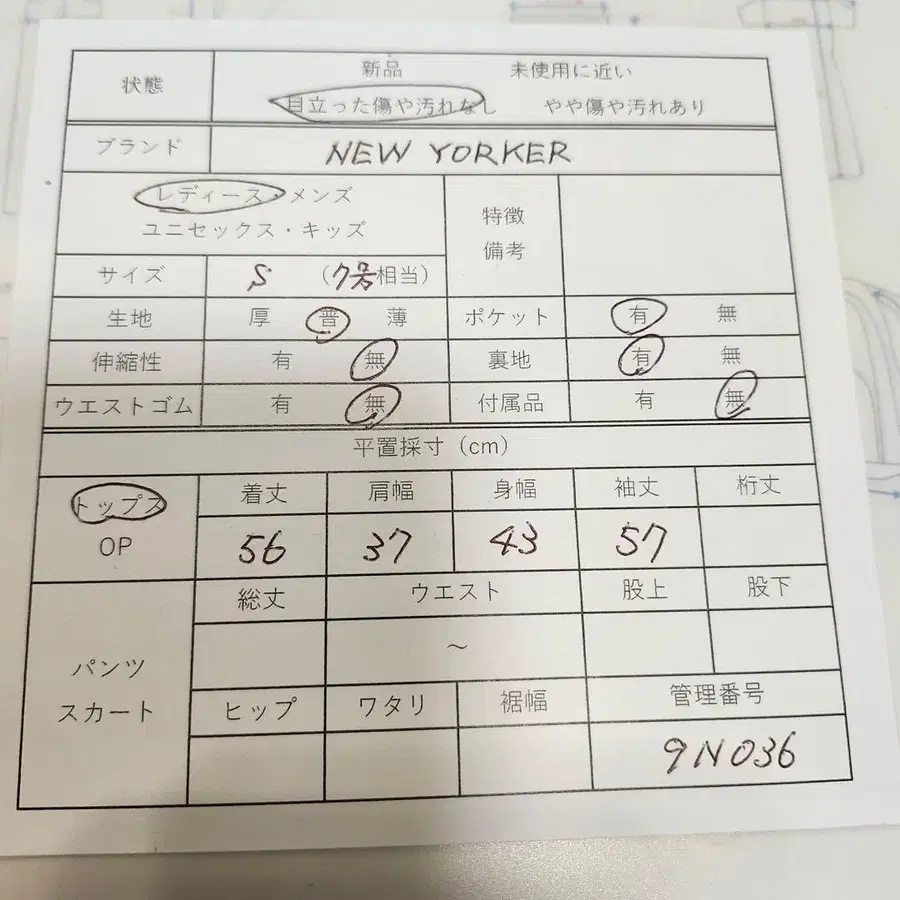 状態
新品 未使用に近い
目立った傷や汚れなし やや傷や汚れあり
ブランド NEW YORKER
レディース・メンズ
ユニセックス・キッズ
特徴
備考
サイズ S (7号相当)
生地 厚 普 薄 ポケット 有 無
伸縮性 有 無 裏地 有 無
ウエストゴム 有 無 付属品 有 無
平置採寸(cm)
トップス
OP
着丈 肩幅 身幅 袖丈 裄丈
56 37 43 57
パンツ
スカート
総丈 ウエスト 股上 股下
~
ヒップ ワタリ 裾幅 管理番号
9N036